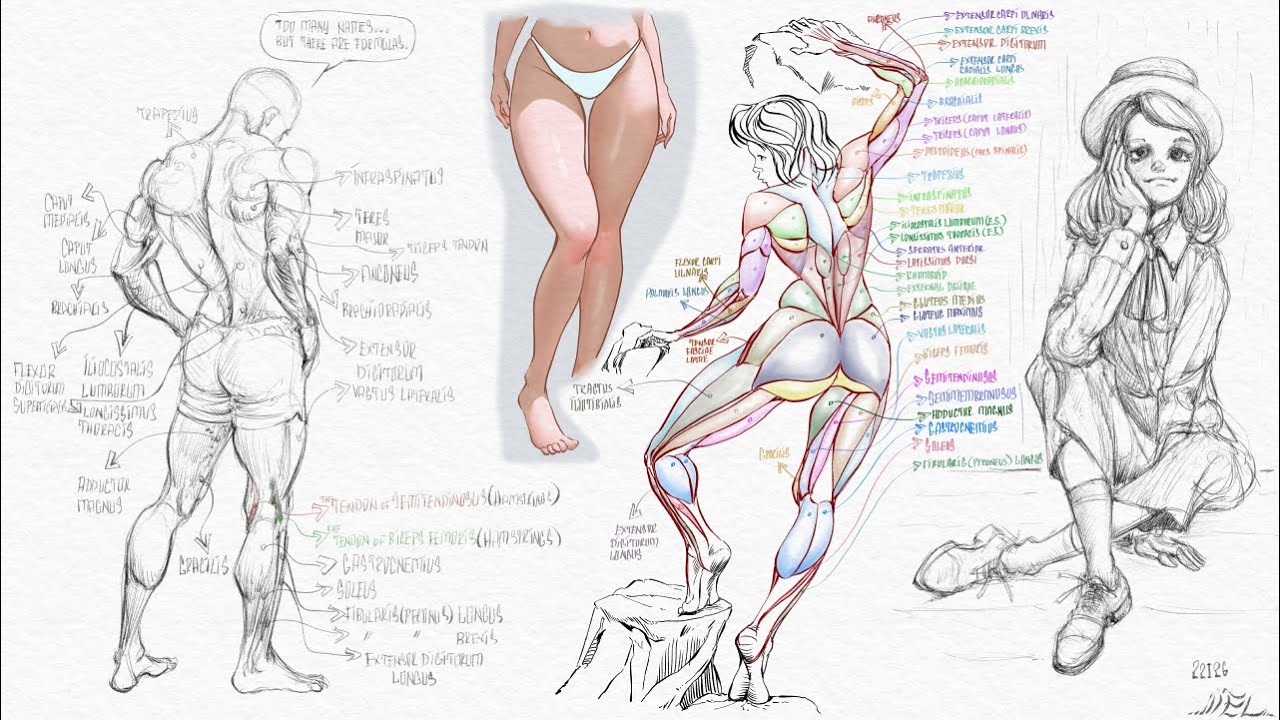 TOO MANY NAMES...
BUT THERE ARE FORMULAS.
TRAPEZIUS
CAPUT
MEDIALIS
CAPUT
LONGUS
FLEXOR
DIGITORUM
ILIOCOSTALIS
LUMBORUM
LONGISSIMUS
THORACIS
ADDUCTOR
MAGNUS
GRACILIS
INFRASPINATUS
TERES
MAJOR
TRICEPS TENDON
ANCONEUS
BRACHIORADIALIS
EXTENSOR
DIGITORUM
VASTUS LATERALIS
THE TENDON OF SEMITENDINOSUS (HAMSTRINGS)
THE TENDON OF BICEPS FEMORIS (HAMSTRINGS)
GASTROCNEMIUS
SOLEUS
FIBULARIS (PERONUS) LONGUS
" " BREVIS
EXTENSOR DIGITORUM
LONGUS
FLEXOR CARPI
ULNARIS
PALMARIS LONGUS
TENSOR
FASCIAE
LATAE
TRACTUS
ILIOTIBIALIS
EXTENSOR
DIGITORUM
LONGUS
GRACILIS
ANCONEUS
BICEPS
EXTENSOR CARPI ULNARIS
EXTENSOR CARPI BREVIS
EXTENSOR DIGITORUM
EXTENSOR CARPI
RADIALIS LONGUS
BRACHIORADIALIS
BRACHIALIS
TRICEPS (CAPUT LATERALIS)
TRICEPS (CAPUT LONGUS)
DELTOIDEUS (PARS SPINALIS)
TRAPEZIUS
INFRASPINATUS
TERES MAJOR
ILIOCOSTALIS LUMBORUM (E.S.)
LONGISSIMUS THORACIS (E.S)
SERRATUS ANTERIOR
LATISSIMUS DORSI
RHOMBOID
EXTERNAL OBLIQUE
GLUTEUS MEDIUS
GLUTEUS MAXIMUS
VASTUS LATERALIS
BICEPS FEMORIS
SEMITENDINOSUS
SEMIMEMBRANOSUS
ADDUCTOR MAGNUS
GASTROCNEMIUS
SOLEUS
FIBULARIS (PERONEUS) LONGUS